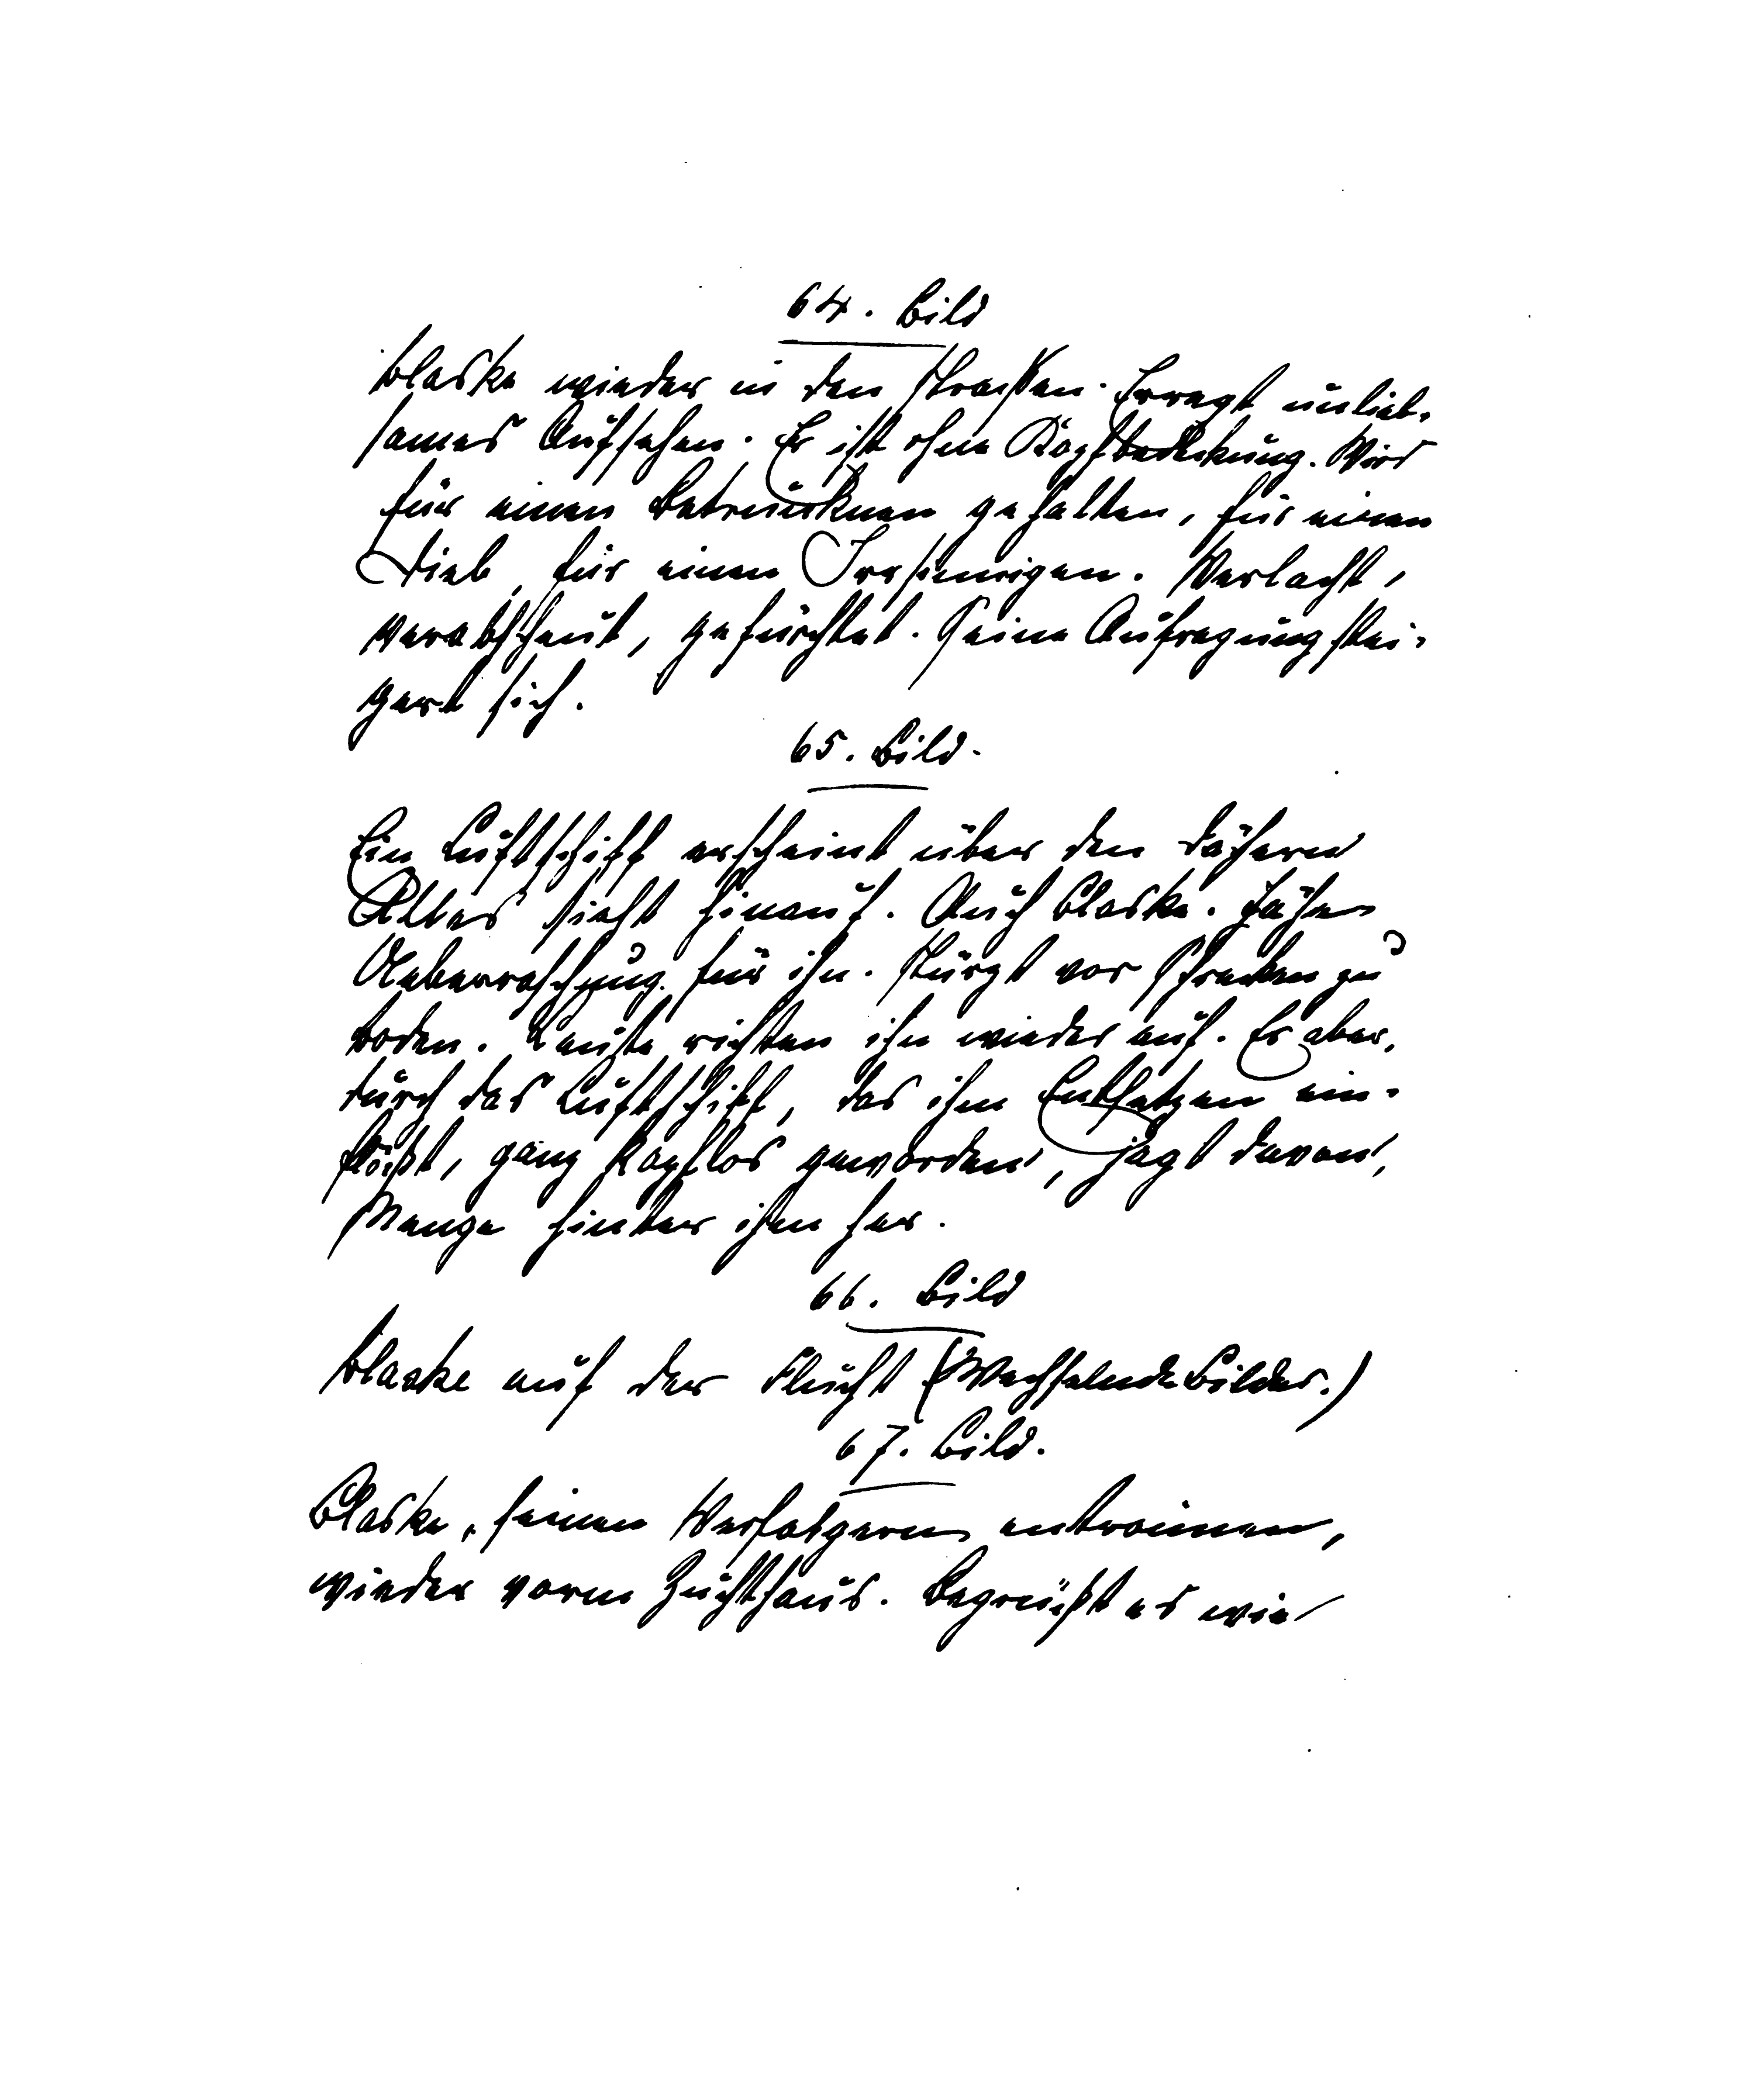 64. Bild
Blaske wieder in den Straßen. Erregt unlieb-
sames Aufsehen. Er ist ohne Kopfbedeckung. Wird
für einen Betrunknen gehalten, für einen
Dieb, für einen Irrsinnigen. Verlacht,
verabscheut, gefürchtet. Seine Aufregung stei-
gert sich.
65. Bild.
Ein Luftschiff erscheint über den Dächern
Alles sieht hinauf. Auch Blaske. Jähe
Ueberraschung für ihn. Stürzt vor Schrecken zu
Boden. Leute richten ihn wieder auf. Er aber,
durch das Luftschiff, das ihm Entsetzen ein-
flößt, ganz kopflos geworden, jagt davon,
Menge hinter ihm her.
66. Bild
Blaske auf der Flucht (Wechselnde Bilder.)
67. Bild.
Blaske, seinen Verfolgern entronnen,
wieder vorm Zuchthaus. Begrüßt es wie